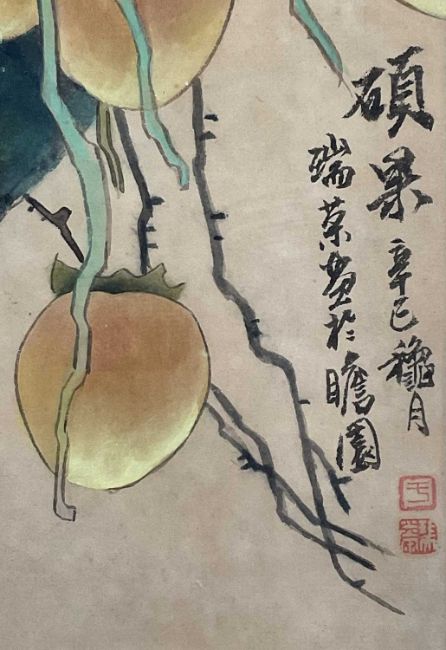 碩果 辛巳穐月
瑞荣畫於瞻園